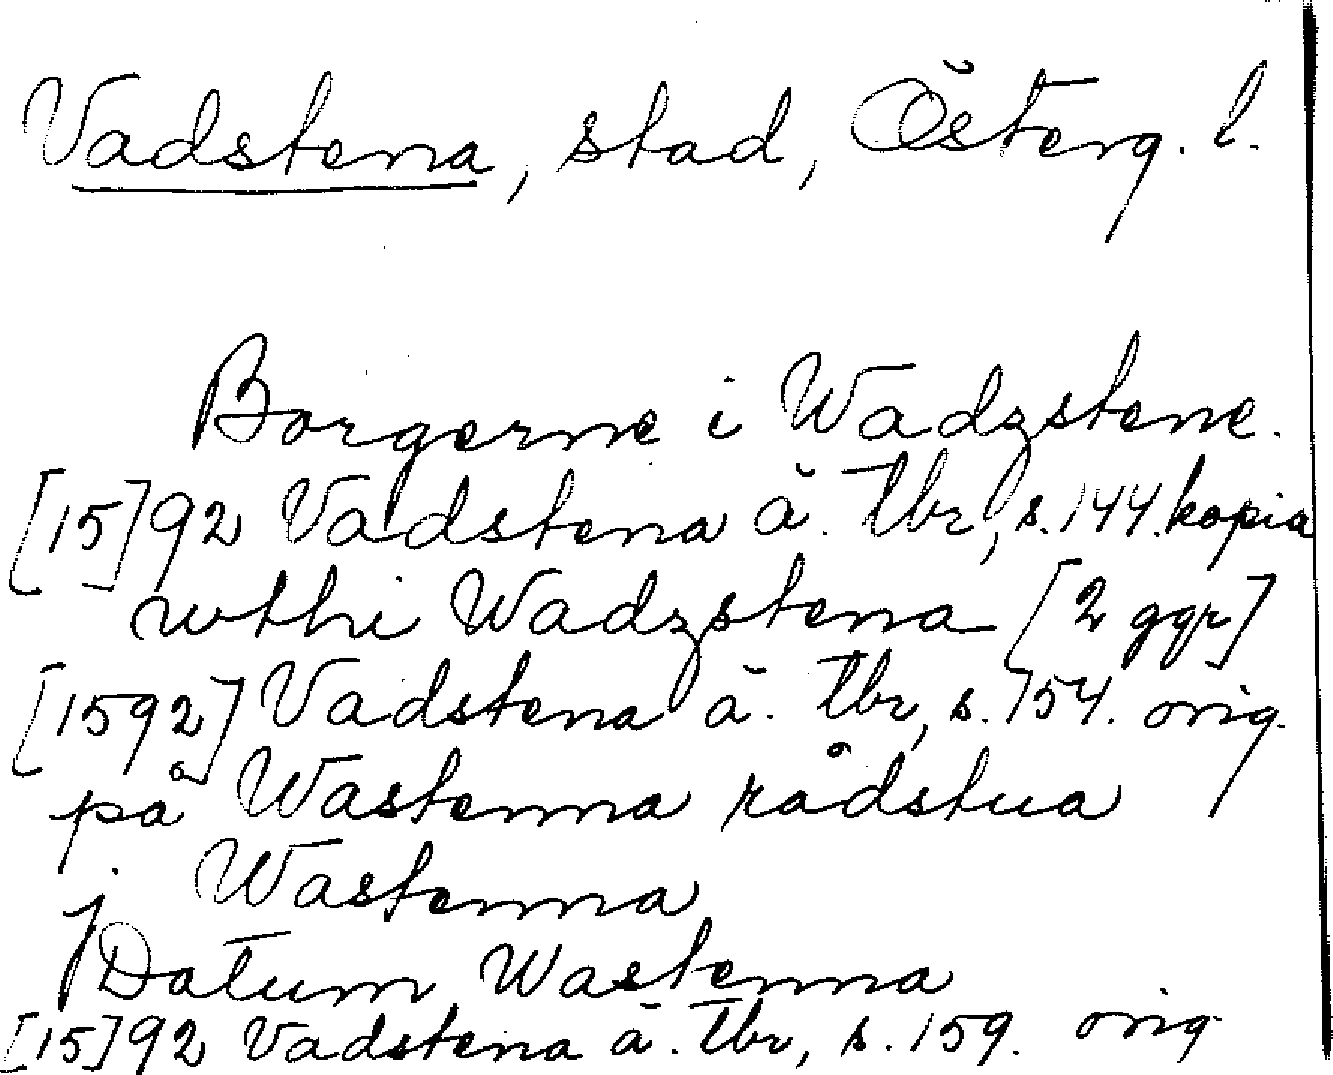 Vadstena, stad, Österg. l.
Borgerne i Wadzstene.
[15]92 Vadstena ä. tbr, s. 144. kopia
wthi Wadzstena [2 ggr]
[1592] Vadstena ä. tbr, s. 154. orig.
på Wastenna rådstua
j Wastenna
Datum Wastenna
[15]92 Vadstena ä. tbr, s. 159. orig